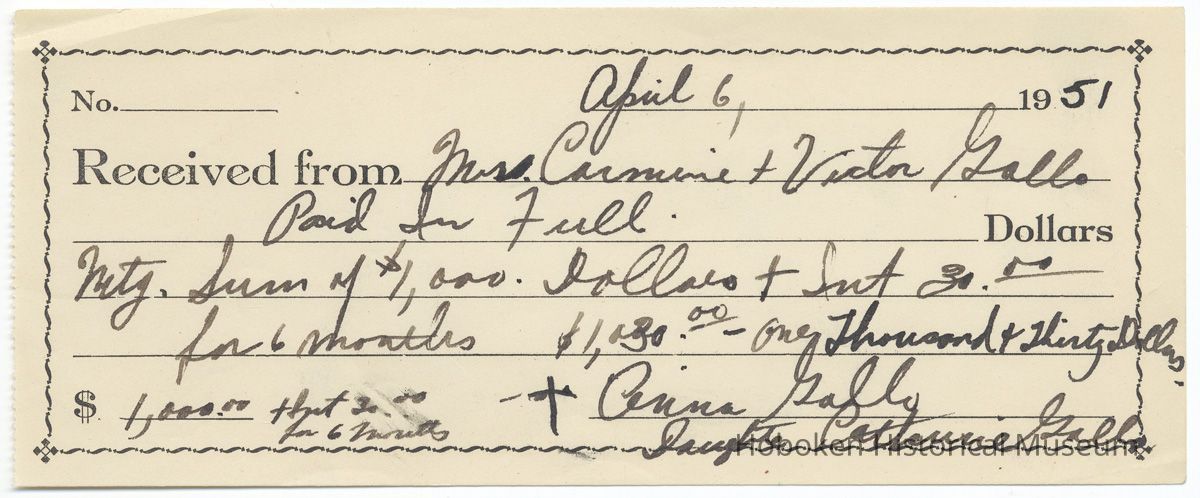 No. April 6, 1951
Received from Mrs. Carmine + Victor Gallo
Paid In Full. Dollars
Mtg. Sum of $1,000. Dollars + Int 30.00
for 6 months $1,030.00 - One Thousand + Thirty Dollars.
$ 1,000.00 + Int 30.00 + Anna
for 6 Months
Daughter Catherine
Hoboken Historical Museum